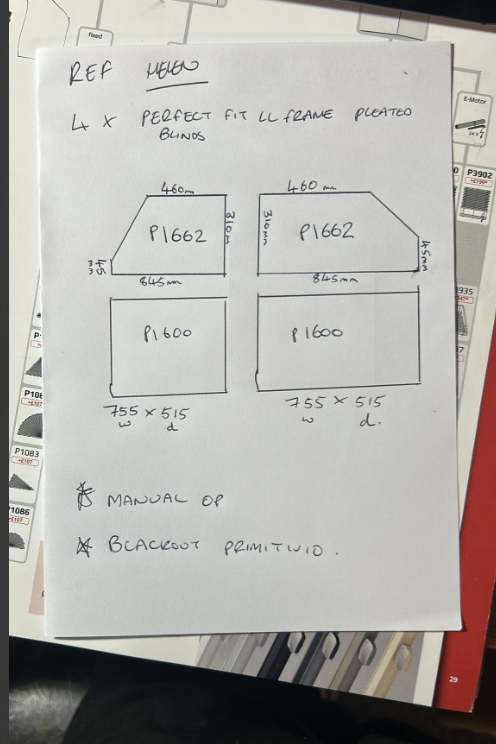 fixed
REF HELEN
4 X PERFECT FIT LL FRAME PLEATED
BLINDS
460mm
P1662
310mm
45mm
845mm
460mm
310mm
P1662
45mm
845mm
P1600
755 x 515
w d
P1600
755 x 515
w d.
MANUAL OP
BLACKOUT PRIMITWIO.
E-Motor
P3902
P1083
1086
29